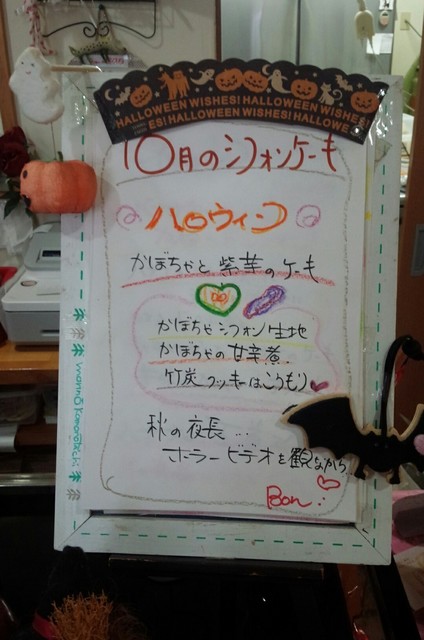 HALLOWEEN WISHES! HALLOWEEN WISHES!
ES! HALLOWEEN WISHES! HALLOWE
10月のシフォンケーキ
ハロウィーン
かぼちゃと紫芋のケーキ
かぼちゃシフォン生地
かぼちゃの甘辛煮.
竹炭クッキーはこうもり
秋の夜長...
ホラービデオを観ながら
Bon.